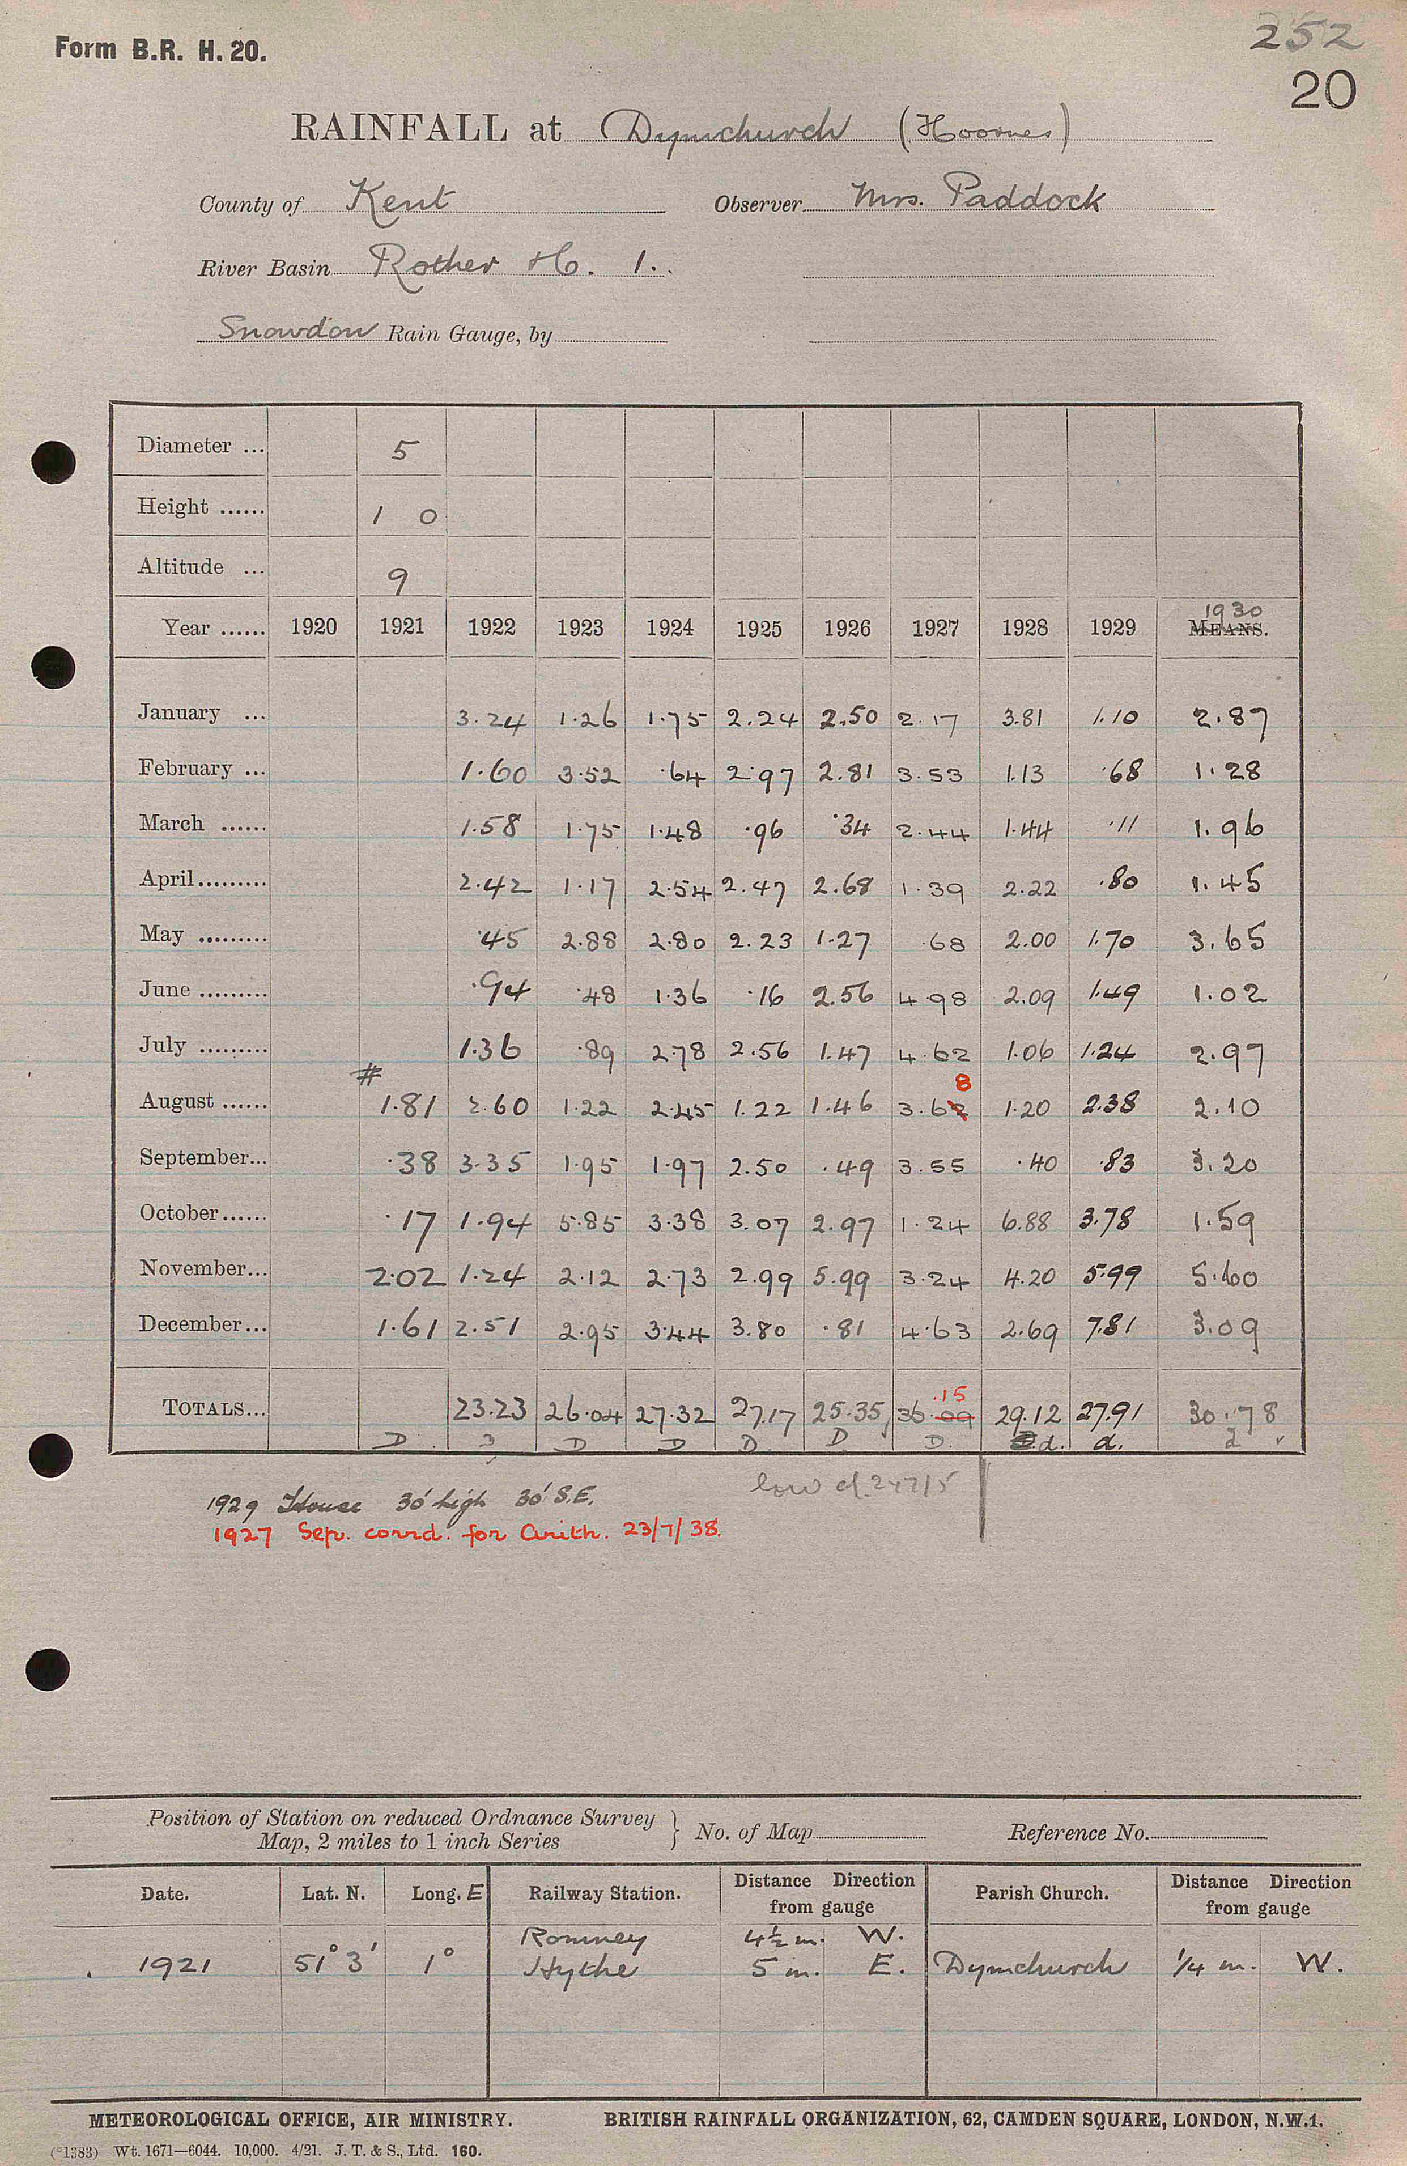 Form B.R. H. 20.
252
20
RAINFALL at Dymchurch (Hoornes)
County of Kent Observer Mrs. Paddock
River Basin Rother H. 1.
Snowdon Rain Gauge, by
Diameter ... 5
Height ...... 1 0
Altitude ... 9
1930
Year ...... 1920 1921 1922 1923 1924 1925 1926 1927 1928 1929 MEANS.
January ... 3.24 1.26 1.75 2.24 2.50 2.17 3.81 1.10 2.87
February ... 1.60 3.52 .64 2.97 2.81 3.53 1.13 .68 1.28
March ...... 1.58 1.75 1.48 .96 .34 2.44 1.44 .11 1.96
April......... 2.42 1.17 2.54 2.47 2.68 1.39 2.22 .80 1.45
May ......... .45 2.88 2.80 2.23 1.27 68 2.00 1.70 3.65
June ......... .94 .48 1.36 .16 2.56 4.98 2.09 1.49 1.02
July ......... 1.36 .89 2.78 2.56 1.47 4.62 1.06 1.24 2.97
# 8
August ...... 1.81 2.60 1.22 2.45 1.22 1.46 3.62 1.20 2.38 2.10
September... .38 3.35 1.95 1.97 2.50 .49 3.55 .40 .83 3.20
October...... .17 1.94 5.85 3.38 3.07 2.97 1.24 6.88 3.78 1.59
November... 2.02 1.24 2.12 2.73 2.99 5.99 3.24 4.20 5.99 5.60
December... 1.61 2.51 2.95 3.44 3.80 .81 4.63 2.69 7.81 3.09
.15
TOTALS... 23.23 26.04 27.32 27.17 25.35 36.09 29.12 27.91 30.78
D D D D D D D d. d. d
low cf. 247/5
1929 House 30' high 30' S.E.
1927 Sep. corrd. for Arith. 23/7/38.
Position of Station on reduced Ordnance Survey
Map, 2 miles to 1 inch Series } No. of Map Reference No.
Date. Lat. N. Long. E Railway Station. Distance Direction from gauge Parish Church. Distance Direction from gauge
Romney 4½ m. W.
1921 51° 3' 1° Hythe 5 m. E. Dymchurch ¼ m. W.
METEOROLOGICAL OFFICE, AIR MINISTRY. BRITISH RAINFALL ORGANIZATION, 62, CAMDEN SQUARE, LONDON, N.W.1.
(*1383) Wt. 1671—6044. 10,000. 4/21. J. T. & S., Ltd. 160.